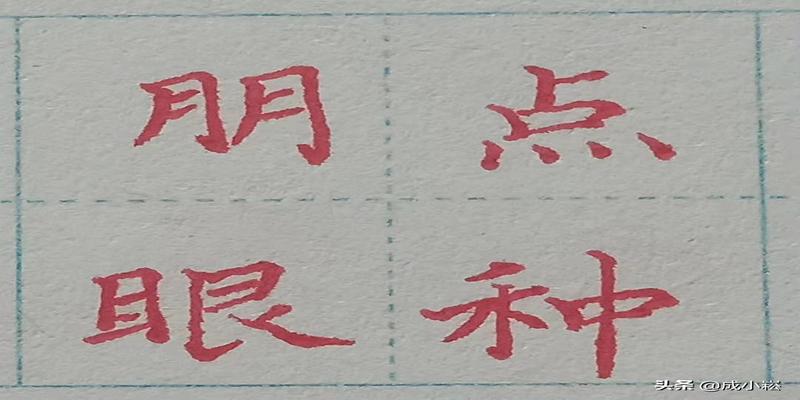 朋点
眼种
头条 @成小崧